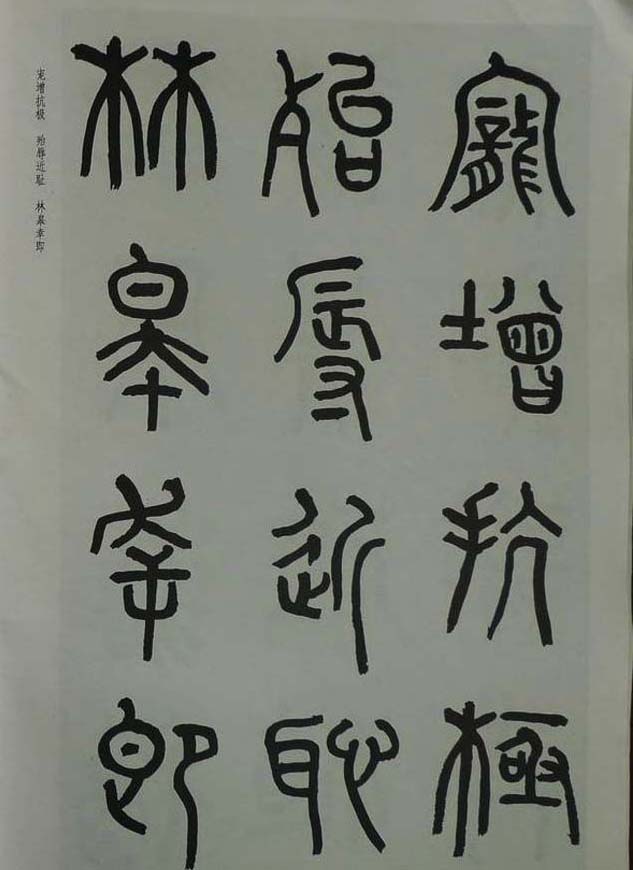 寵增抗極
殆辱近恥
林皋幸即
宠增抗极 殆辱近耻 林皋幸即